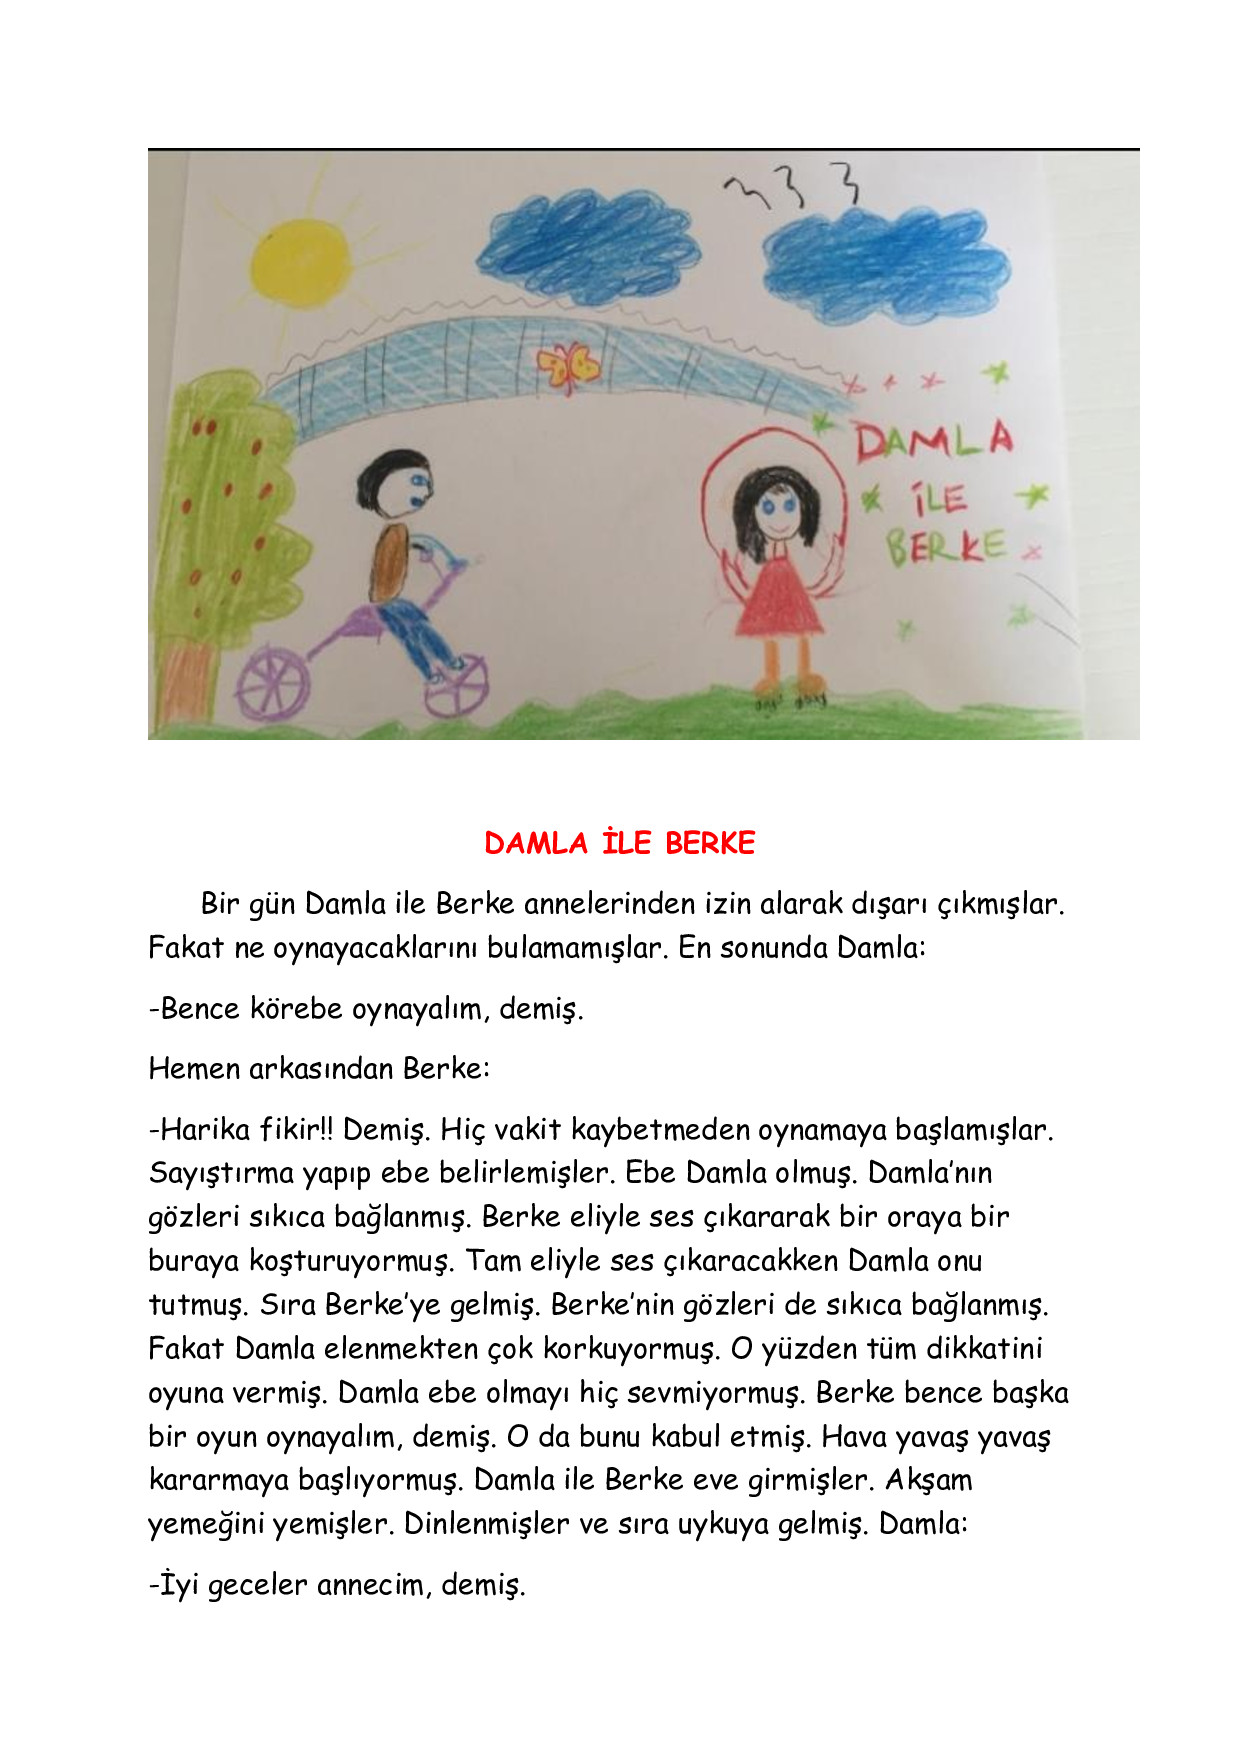 DAMLA
İLE
BERKE
DAMLA İLE BERKE
Bir gün Damla ile Berke annelerinden izin alarak dışarı çıkmışlar.
Fakat ne oynayacaklarını bulamamışlar. En sonunda Damla:
-Bence körebe oynayalım, demiş.
Hemen arkasından Berke:
-Harika fikir!! Demiş. Hiç vakit kaybetmeden oynamaya başlamışlar.
Sayıştırma yapıp ebe belirlemişler. Ebe Damla olmuş. Damla’nın
gözleri sıkıca bağlanmış. Berke eliyle ses çıkararak bir oraya bir
buraya koşturuyormuş. Tam eliyle ses çıkaracakken Damla onu
tutmuş. Sıra Berke’ye gelmiş. Berke’nin gözleri de sıkıca bağlanmış.
Fakat Damla elenmekten çok korkuyormuş. O yüzden tüm dikkatini
oyuna vermiş. Damla ebe olmayı hiç sevmiyormuş. Berke bence başka
bir oyun oynayalım, demiş. O da bunu kabul etmiş. Hava yavaş yavaş
kararmaya başlıyormuş. Damla ile Berke eve girmişler. Akşam
yemeğini yemişler. Dinlenmişler ve sıra uykuya gelmiş. Damla:
-İyi geceler annecim, demiş.